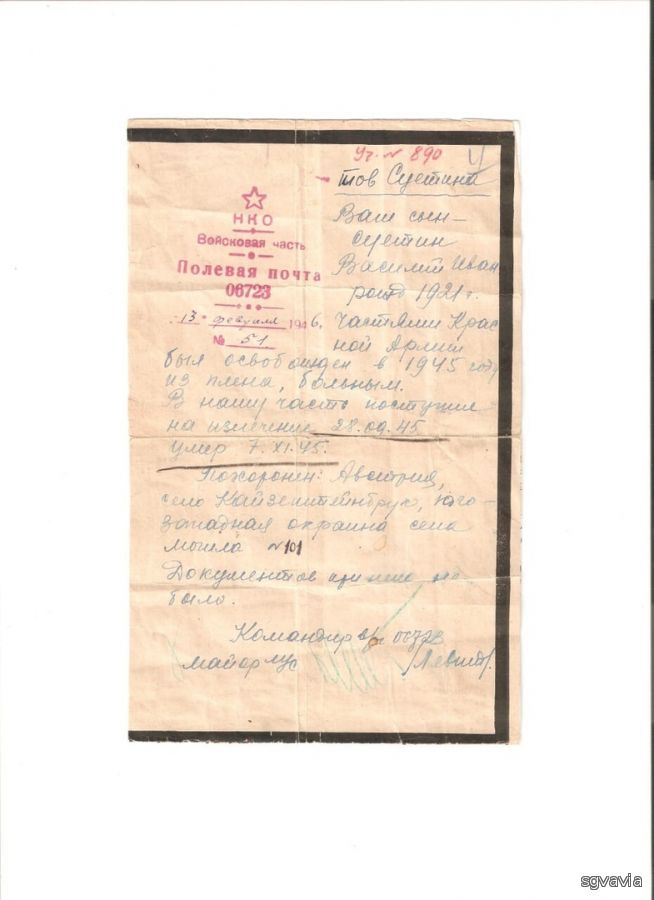 Уг. № 890
тов Суетина
НКО
Войсковая часть
Полевая почта
06723
13 февраля 1946
№ 51
Ваш сын-
Суетин
Василий Иван
рожд 1921 г.
частями Крас
ной Армии
был освобожден в 1945 году
из плена, больным.
В нашу часть поступил
на излечение 28.09.45
умер 7.XI.45.
Похоронен: Австрия,
село Кайзенштейнбрух, юго-
западная окраина села
могила №101
Документов при нем не
было.
Командир в/ч 06723
майор м/с /Левит/.
sgvavia